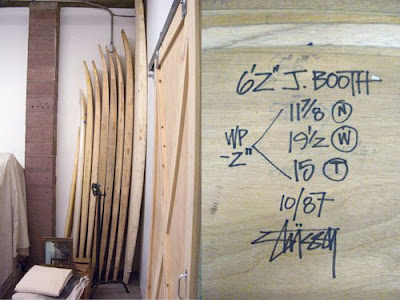 6'2" J. BOOTH
11 7/8 N
WP 19 1/2 W
-2"
15 T
10/87
Stüssy